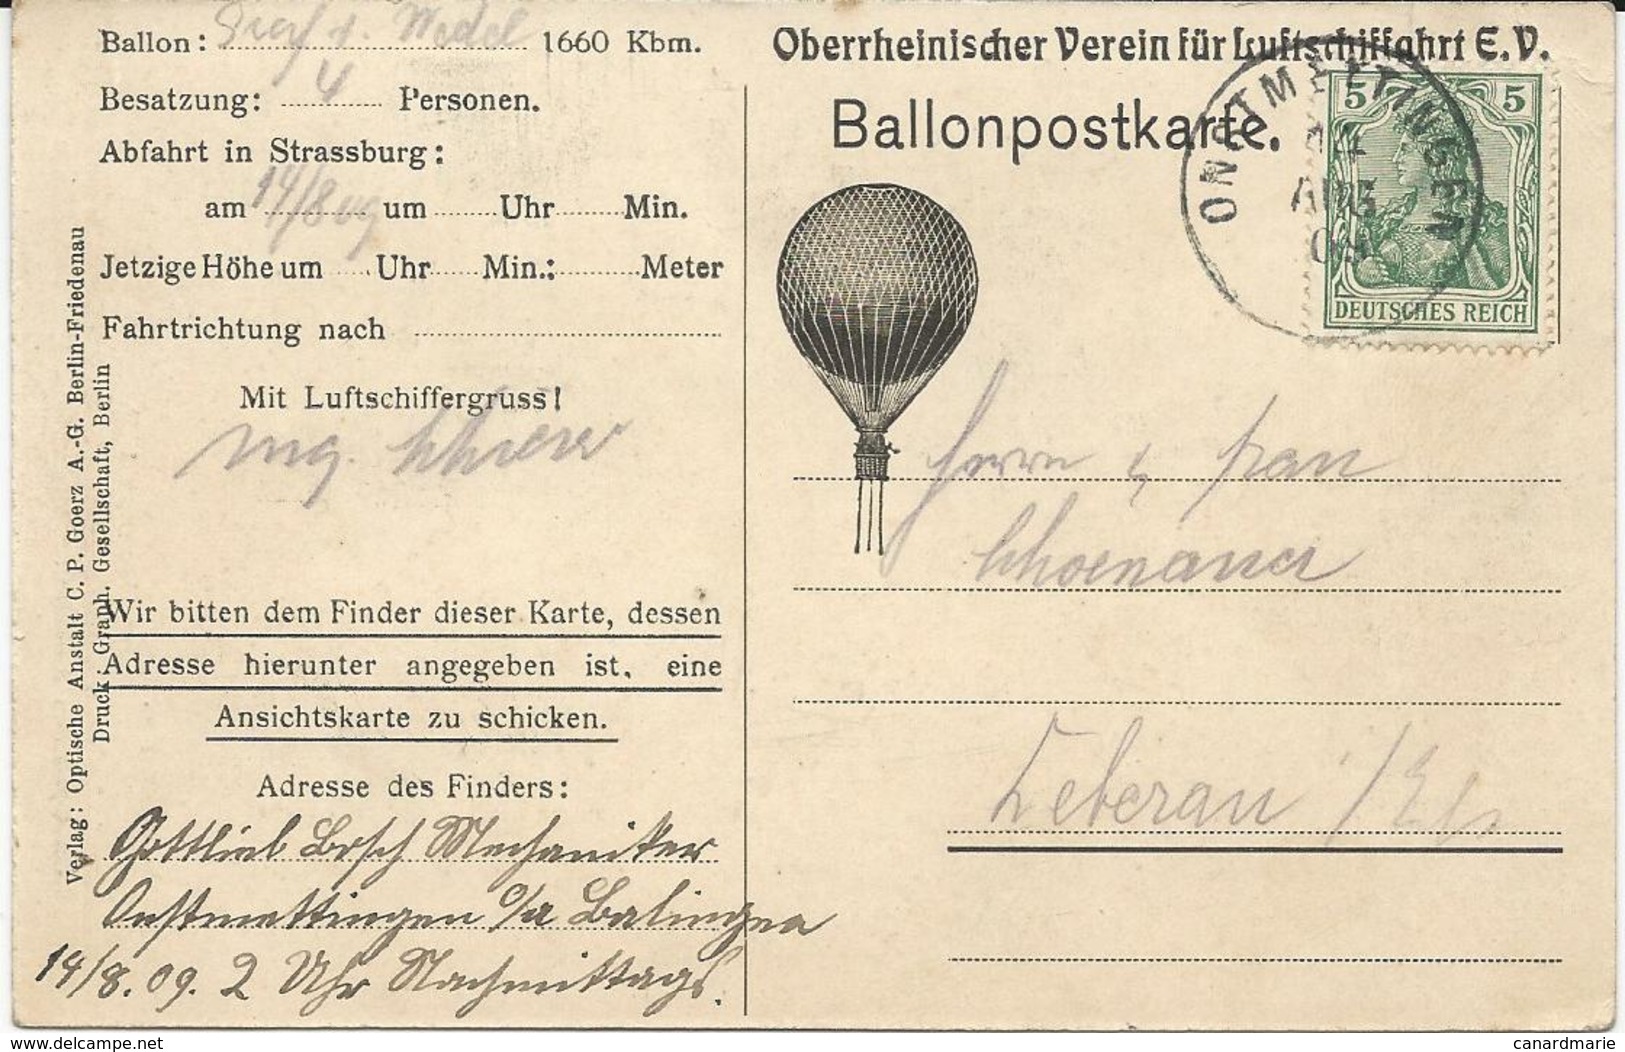 Ballon: Graf v. Wedel 1660 Kbm.
Besatzung: 4 Personen.
Abfahrt in Strassburg:
am 14/8 09 um Uhr Min.
Jetzige Höhe um Uhr Min.: Meter
Fahrtrichtung nach
Mit Luftschiffergruss!
Ing.
Wir bitten dem Finder dieser Karte, dessen
Adresse hierunter angegeben ist, eine
Ansichtskarte zu schicken.
Adresse des Finders:
Gottlieb Bosch Mechaniker
Onstmettingen O/A Balingen
14/8.09. 2 Uhr Nachmittags.
Verlag: Optische Anstalt C. P. Goerz A.-G. Berlin-Friedenau
Druck: Graph. Gesellschaft, Berlin
Oberrheinischer Verein für Luftschiffahrt E.V.
Ballonpostkarte.
ONSTMETTINGEN
14
AUG
09
5 5
DEUTSCHES REICH
Herrn & Frau
Schoenauer
Leberau /Els
delcampe.net
canardmarie